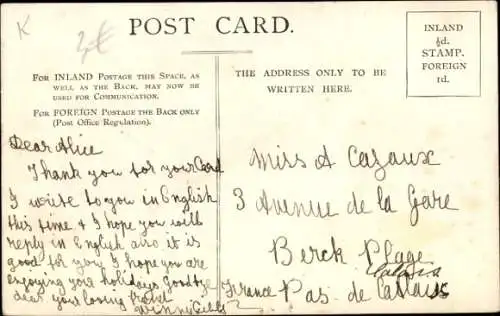 K
3€
POST CARD.
FOR INLAND POSTAGE THIS SPACE, AS
WELL AS THE BACK, MAY NOW BE
USED FOR COMMUNICATION.
FOR FOREIGN POSTAGE THE BACK ONLY
(Post Office Regulation).
THE ADDRESS ONLY TO BE
WRITTEN HERE.
INLAND
½d.
STAMP.
FOREIGN
1d.
Dear Alice
Thank you for your Card
I write to you in English
this time & I hope you will
reply in English also it is
good for you I hope you are
enjoying your holidays Goodbye
dear your loving friend
Winny
Miss A Cazaux
3 Avenue de la Gare
Berck Plage
Calais
France Pas. de Calais